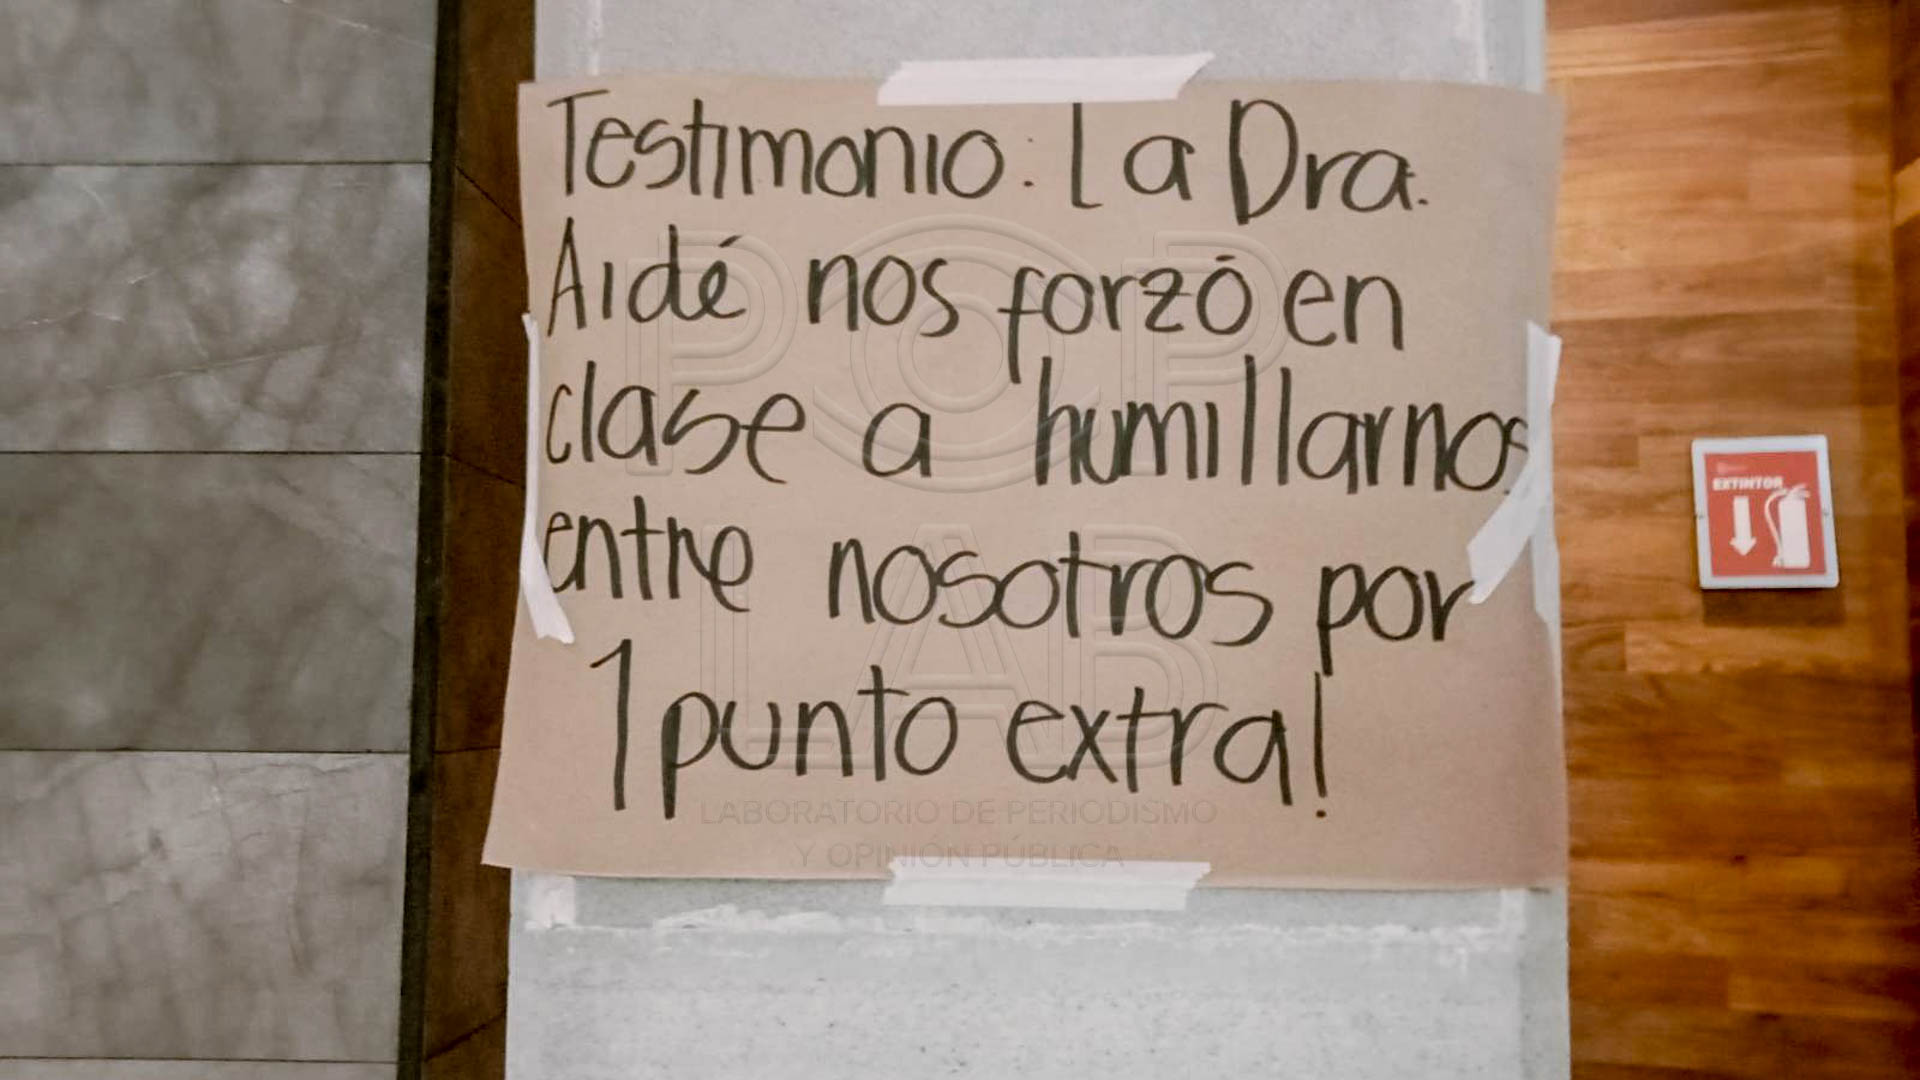 Testimonio: La Dra.
Aidé nos forzó en
clase a humillarnos
entre nosotros por
1 punto extra!
EXTINTOR
POP
LAB
LABORATORIO DE PERIODISMO
Y OPINIÓN PÚBLICA